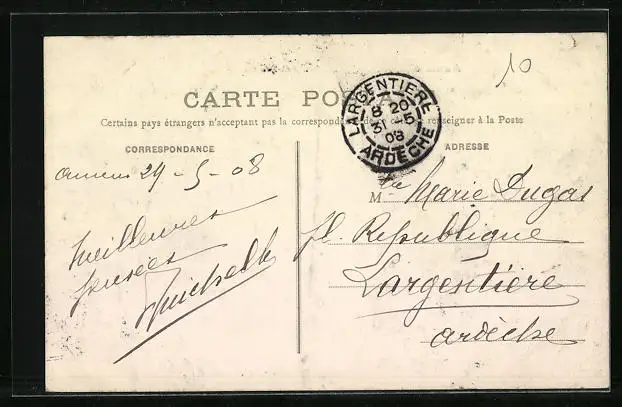 10
CARTE POSTALE
Certains pays étrangers n'acceptant pas la correspondance de ce côté, se renseigner à la Poste
CORRESPONDANCE
ADRESSE
LARGENTIERE
8 20
31 -5
08
ARDECHE
Amiens 29-5-08
Meilleures
pensées
M lle Marie Dugas
pl. République
Largentière
Ardèche